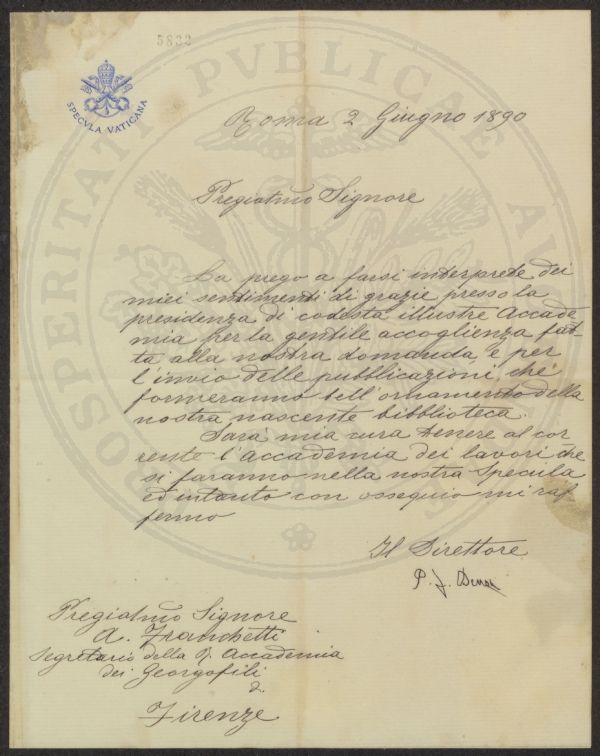 5832
SPECVLA VATICANA
PROSPERITATI PVBLICAE AV
Roma 2 Giugno 1890
Pregiatmo Signore
La prego a farsi interprete dei
miei sentimenti di grazie presso la
presidenza di codesta illustre Accade
mia per la gentile accoglienza fat-
ta alla nostra domanda e per
l'invio delle pubblicazioni, che
formeranno bell'ornamento della
nostra nascente bibblioteca.
Sarà mia cura tenere al cor
rente l'accademia dei lavori che
si faranno nella nostra Specula
ed intanto con ossequio mi raf
fermo
Il Direttore
P. F. Denza
Pregiatmo Signore
A. Franchetti
Segretario della R. Accademia
dei Georgofili
di
Firenze